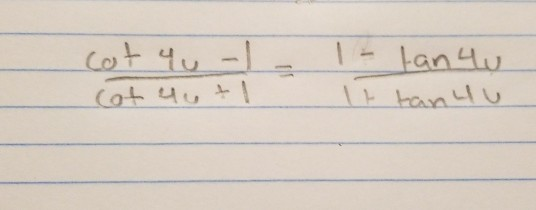 cot 4u - 1 = 1 - tan 4u
cot 4u + 1 1 + tan 4u